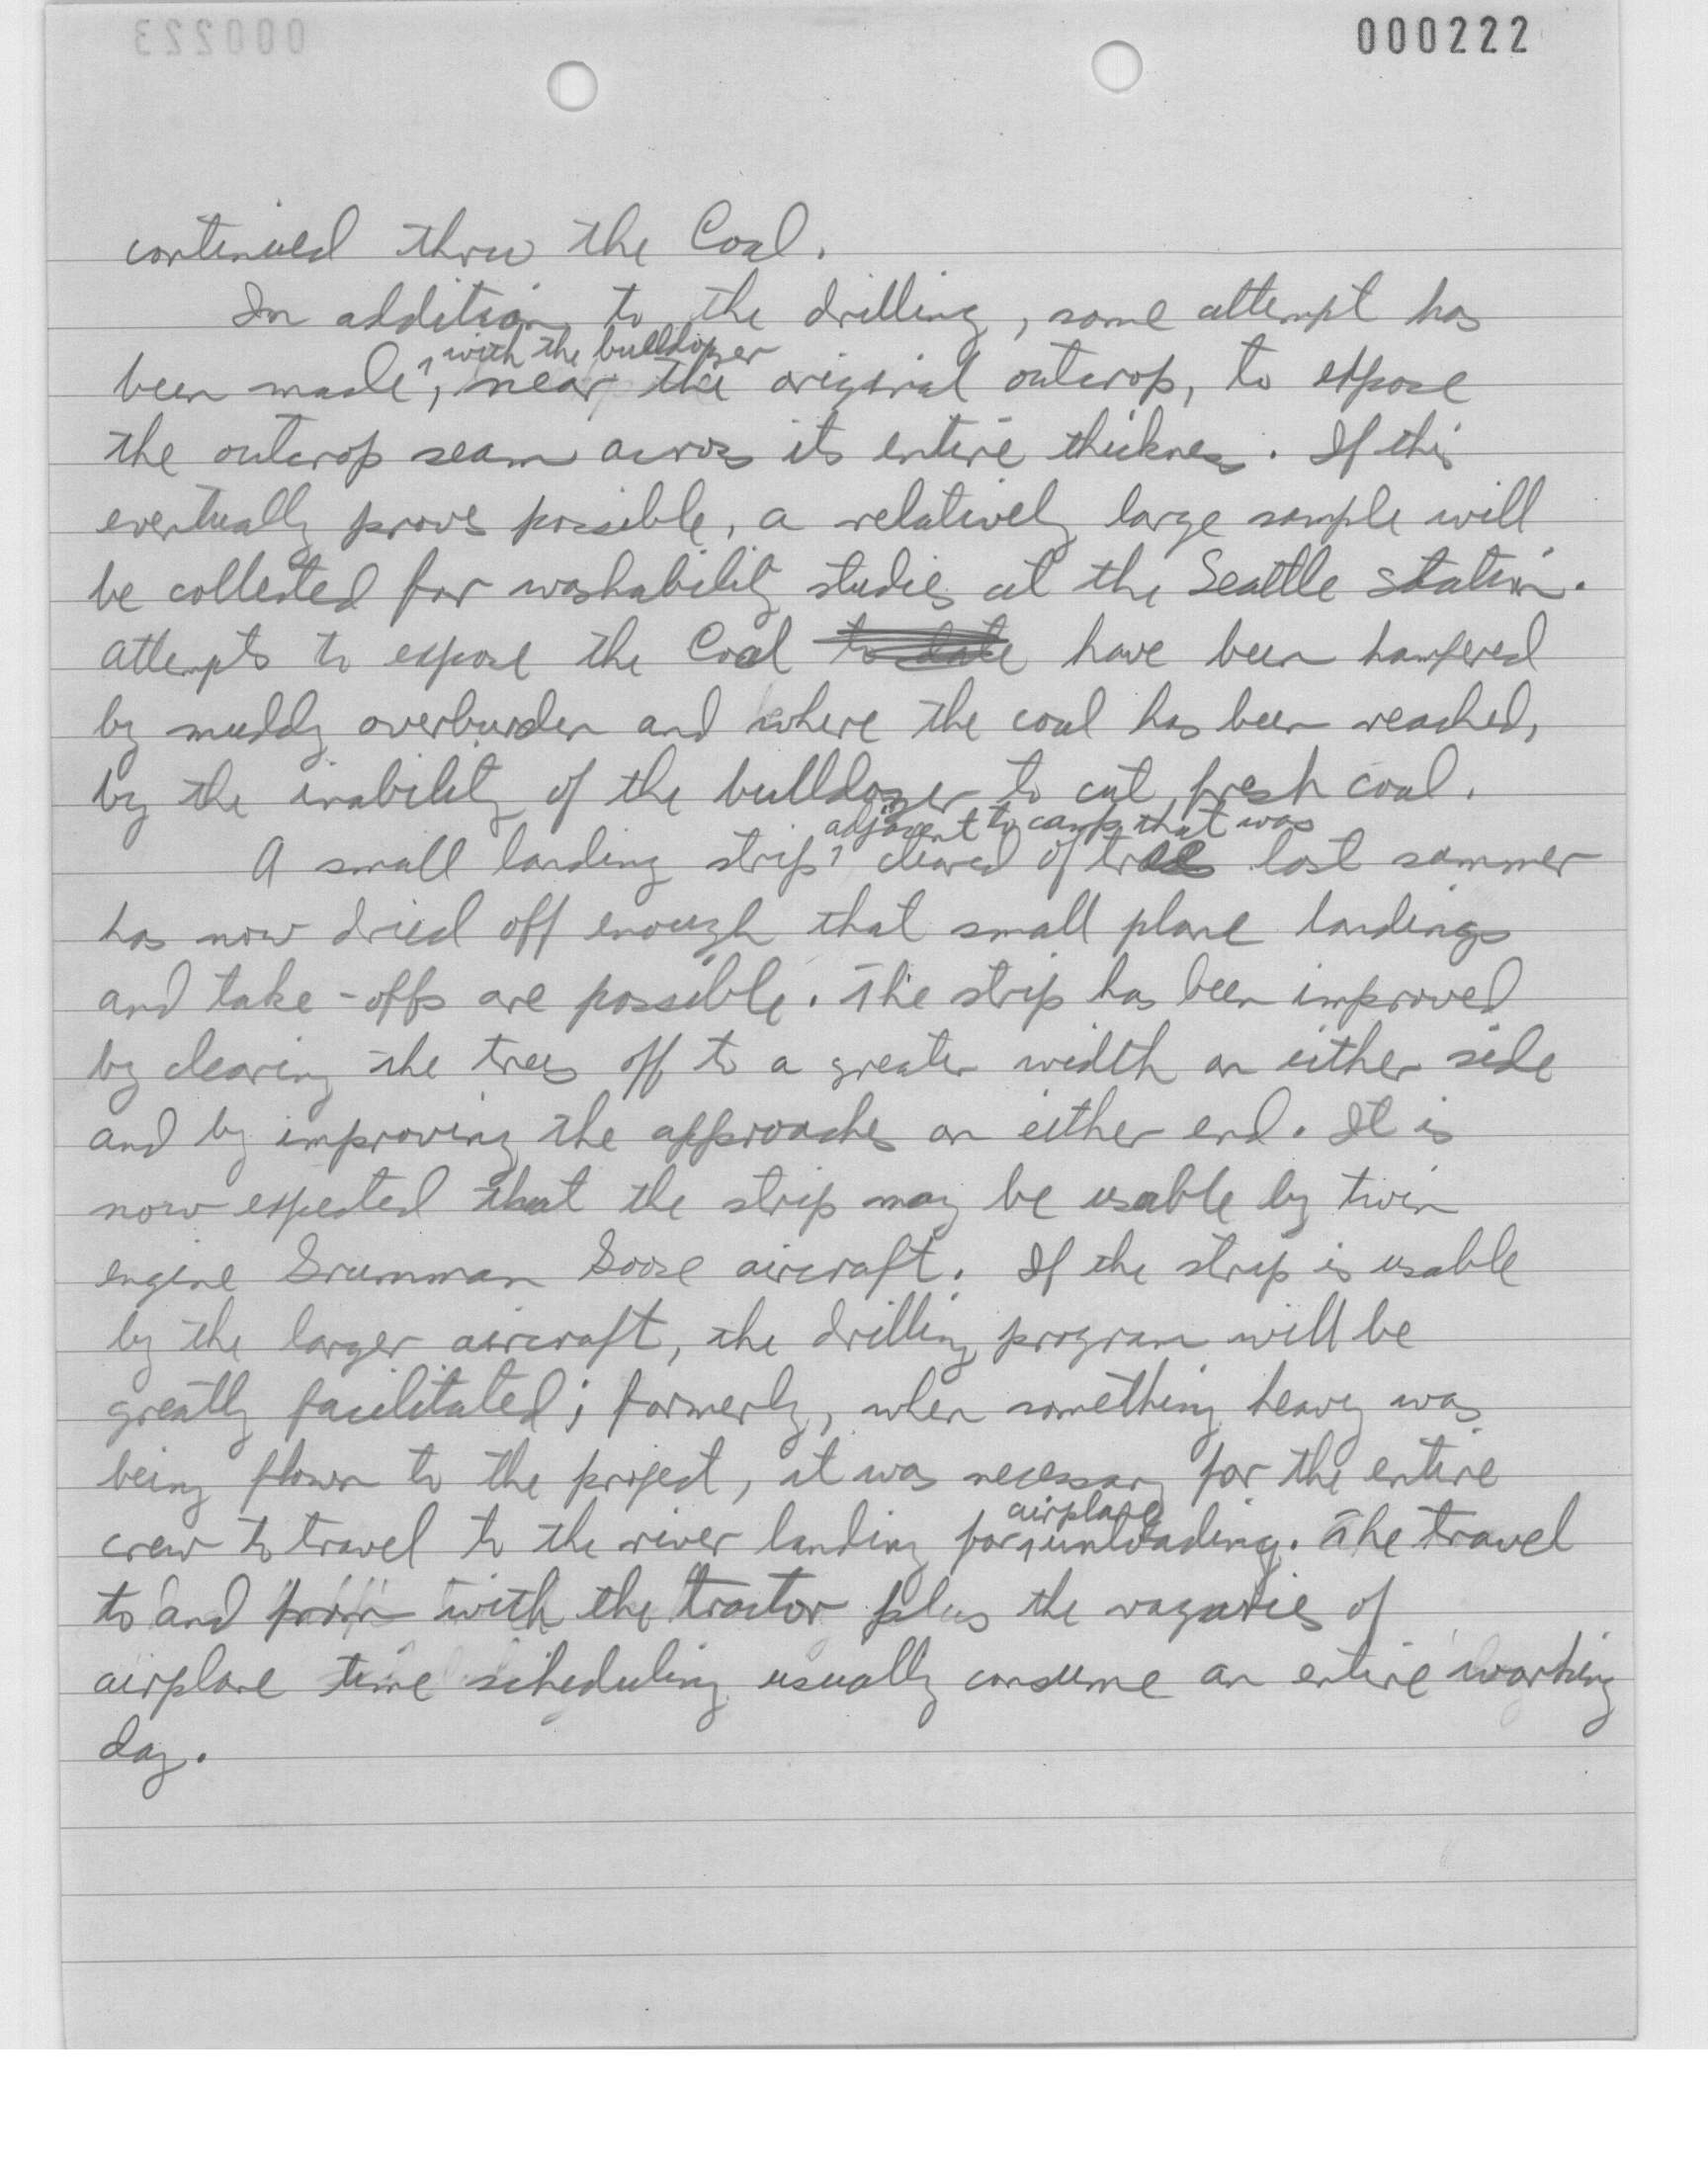 000222
continued thru the Coal.
In addition to the drilling, some attempt has
with the bulldozer
been made, near the original outcrop, to expose
the outcrop seam across its entire thickness. If this
eventually proves possible, a relatively large sample will
be collected for washability studies at the Seattle Station.
Attempts to expose the Coal to date have been hampered
by muddy overburden and where the coal has been reached,
by the inability of the bulldozer to cut fresh coal.
adjacent to camp that was
A small landing strip cleared of trees last summer
has now dried off enough that small plane landings
and take-offs are possible. The strip has been improved
by clearing the trees off to a greater width on either side
and by improving the approaches on either end. It is
now expected that the strip may be usable by twin
engine Grumman Goose aircraft. If the strip is usable
by the larger aircraft, the drilling program will be
greatly facilitated; formerly, when something heavy was
being flown to the project, it was necessary for the entire
airplane
crew to travel to the river landing for unloading. The travel
to and from with the tractor plus the vagaries of
airplane time scheduling usually consume an entire working
day.